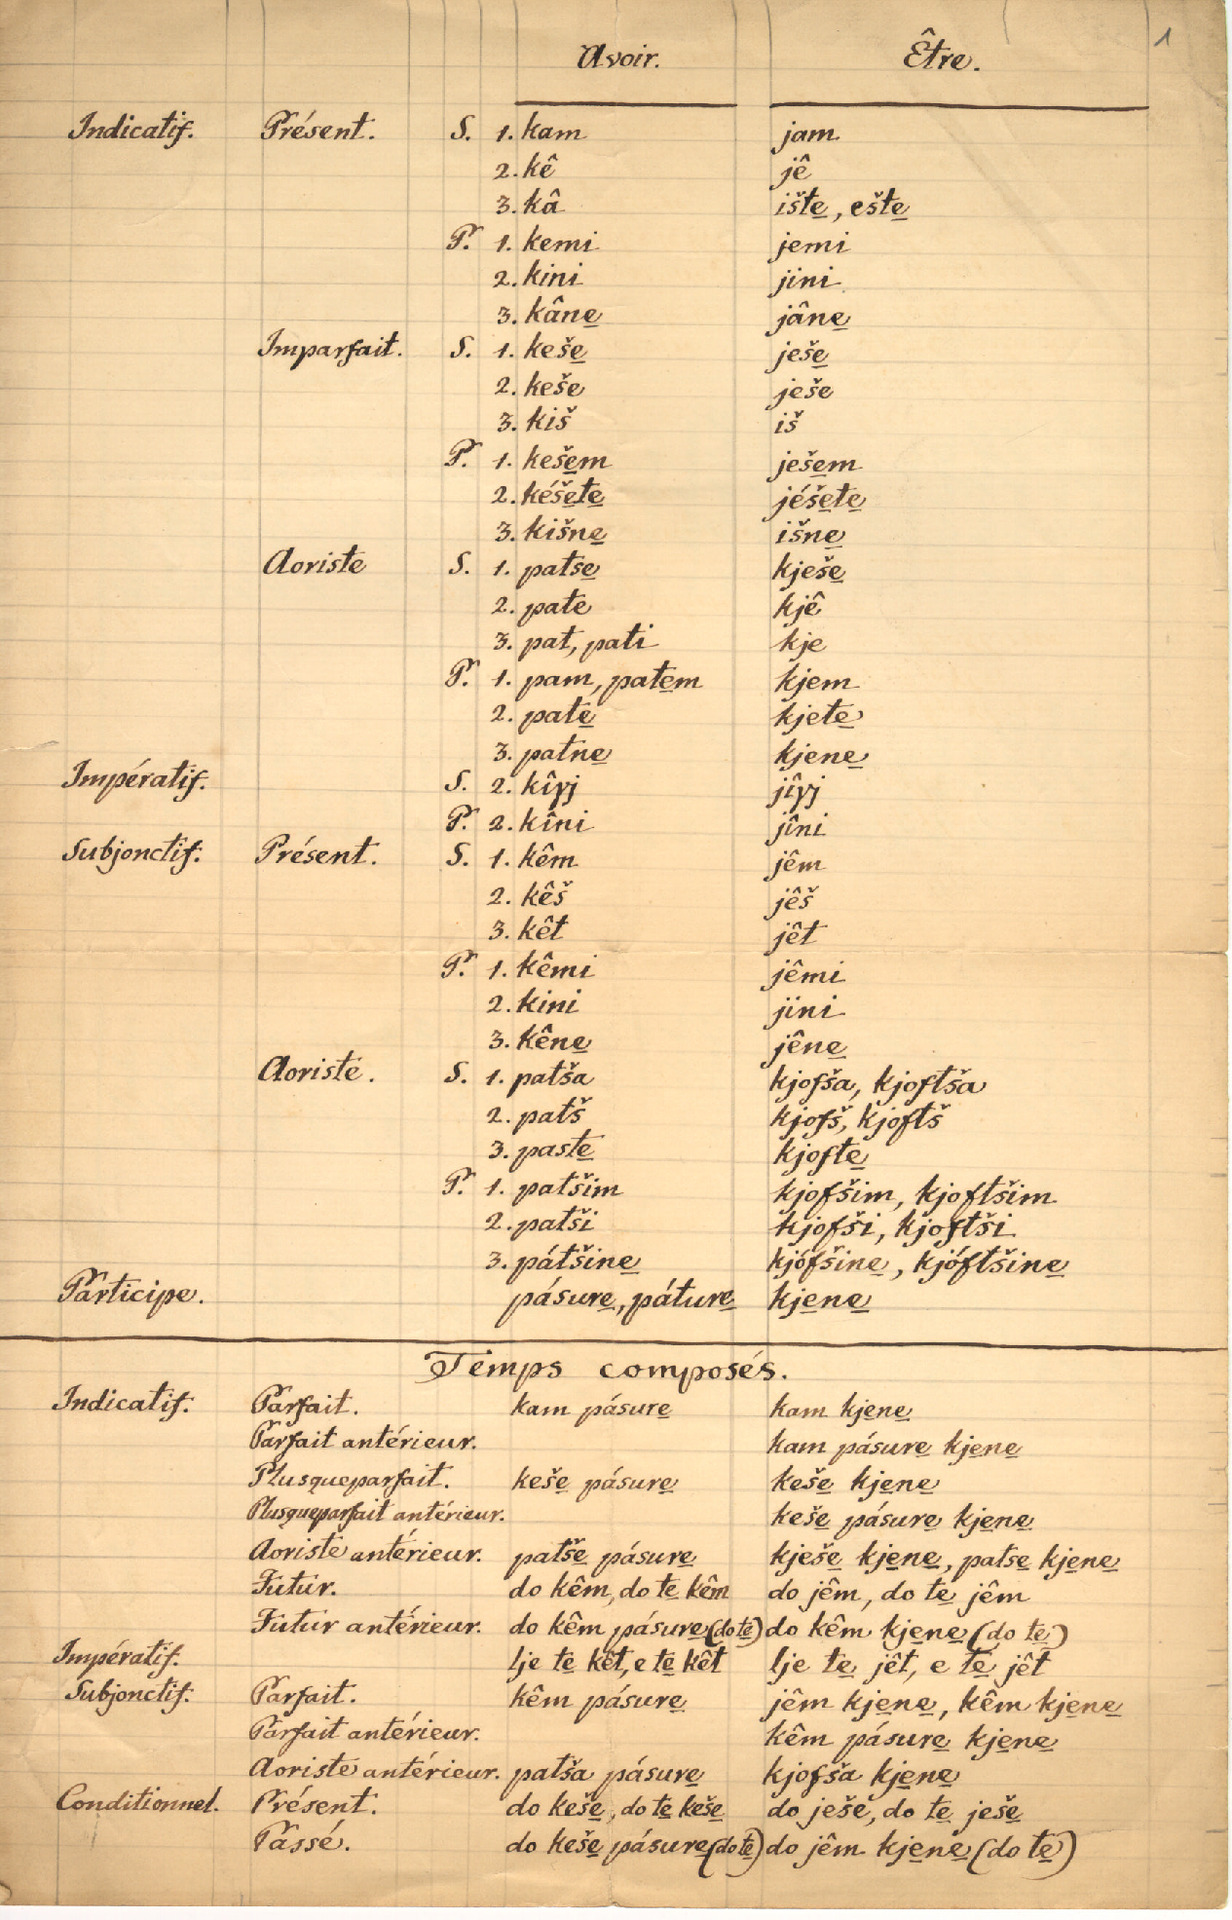 1
Avoir. Être.
Indicatif. Présent. S. 1. kam jam
2. kê jê
3. kâ ište̱, ešte̱
P. 1. kemi jemi
2. kini jini
3. kâne̱ jâne̱
Imparfait. S. 1. keše̱ ješe̱
2. keše ješe
3. kiš iš
P. 1. keše̱m ješe̱m
2. kéše̱te̱ jéše̱te̱
3. kišne̱ išne̱
Aoriste S. 1. patše̱ kješe̱
2. pate kjê
3. pat, pati kje
P. 1. pam, pate̱m kjem
2. pate̱ kjete̱
3. patne̱ kjene̱
Impératif. S. 2. kîγj jîγj
P. 2. kîni jîni
Subjonctif. Présent. S. 1. kêm jêm
2. kêš jêš
3. kêt jêt
P. 1. kêmi jêmi
2. kini jini
3. kêne̱ jêne̱
Aoriste. S. 1. patša kjofša, kjoftša
2. patš kjofš, kjoftš
3. paste̱ kjofte̱
P. 1. patšim kjofšim, kjoftšim
2. patši kjofši, kjoftši
3. pátšine̱ kjófšine̱, kjóftšine̱
Participe. pásure̱, páture̱ kje̱ne̱
Temps composés.
Indicatif. Parfait. kam pásure̱ kam kje̱ne̱
Parfait antérieur. kam pásure̱ kje̱ne̱
Plusqueparfait. keše̱ pásure̱ keše̱ kje̱ne̱
Plusqueparfait antérieur. keše̱ pásure̱ kje̱ne̱
Aoriste antérieur. patše̱ pásure̱ kješe̱ kje̱ne̱, patse̱ kje̱ne̱
Futur. do kêm, do te̱ kêm do jêm, do te̱ jêm
Futur antérieur. do kêm pásure̱ (do te̱) do kêm kje̱ne̱ (do te̱)
Impératif. lje te̱ kêt, e te̱ kêt lje te̱ jêt, e te̱ jêt
Subjonctif. Parfait. kêm pásure̱ jêm kje̱ne̱, kêm kje̱ne̱
Parfait antérieur. kêm pásure̱ kje̱ne̱
Aoriste antérieur. patša pásure̱ kjofša kje̱ne̱
Conditionnel. Présent. do keše̱, do te̱ keše̱ do ješe̱, do te̱ ješe̱
Passé. do keše̱ pásure̱ (do te̱) do jêm kje̱ne̱ (do te̱)